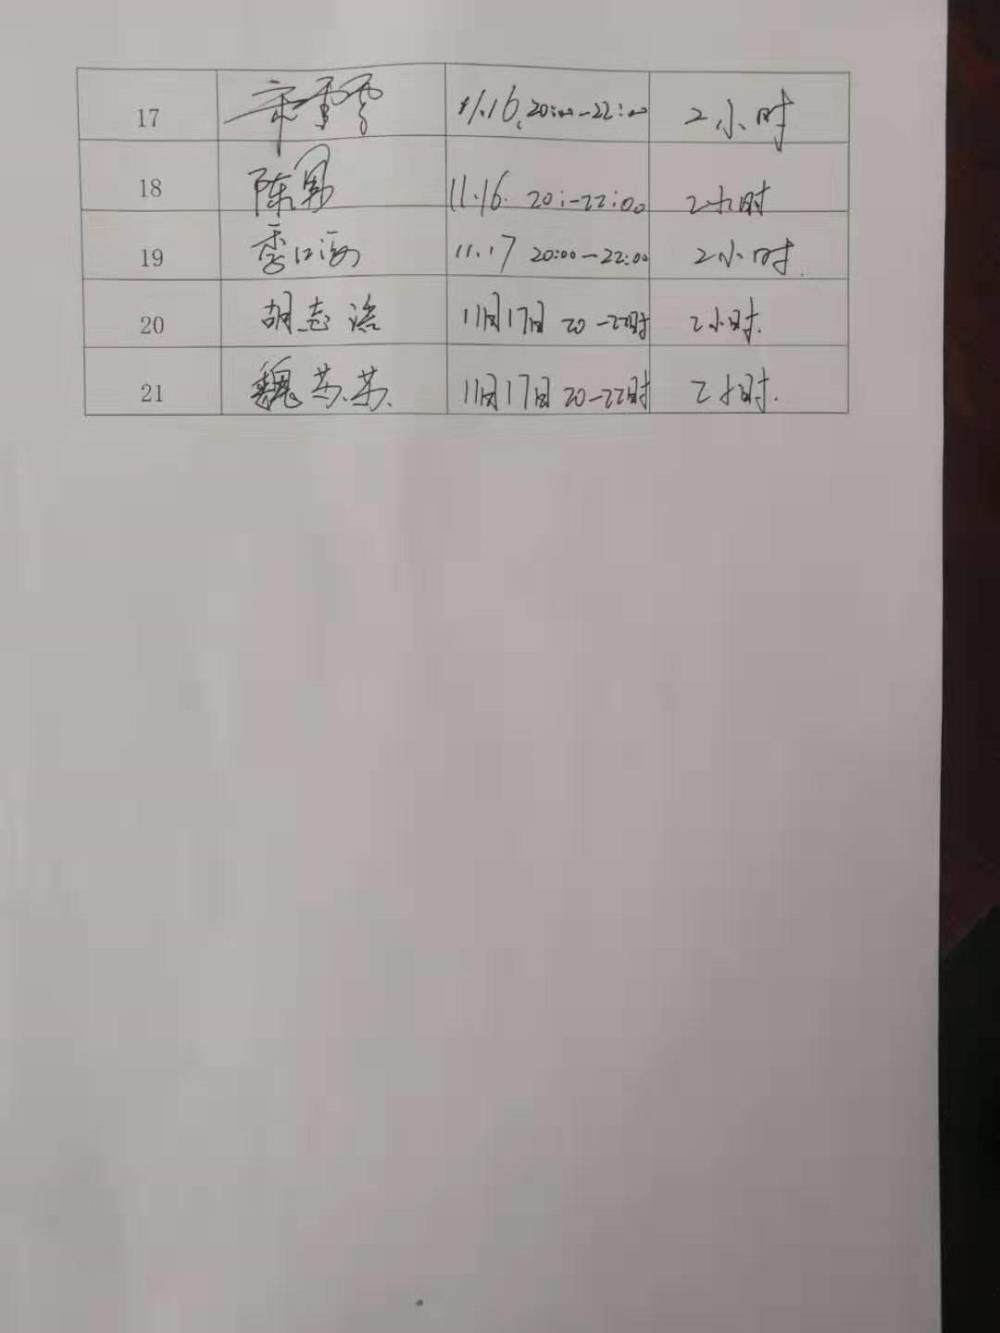 17 11.16, 20:00-22:00 2小时
18 陈男 11.16. 20:-22:00 2小时
19 11.17 20:00-22:00 2小时.
20 胡志 11月17日 20-22时 2小时.
21 魏苏苏. 11月17日 20-22时 2小时.